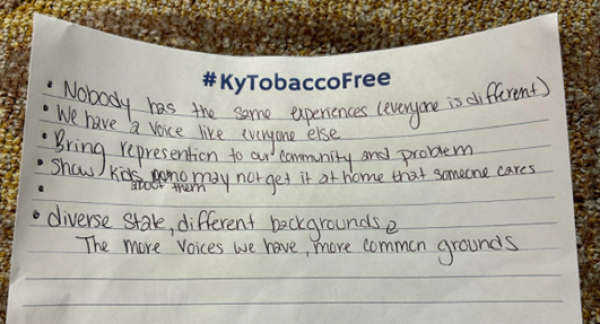 #KyTobaccoFree
• Nobody has the same experiences (everyone is different)
• We have a voice like everyone else
• Bring represention to our community and problem
• Show kids who may not get it at home that someone cares
about them
•
• diverse state, different backgrounds
The more voices we have, more common grounds